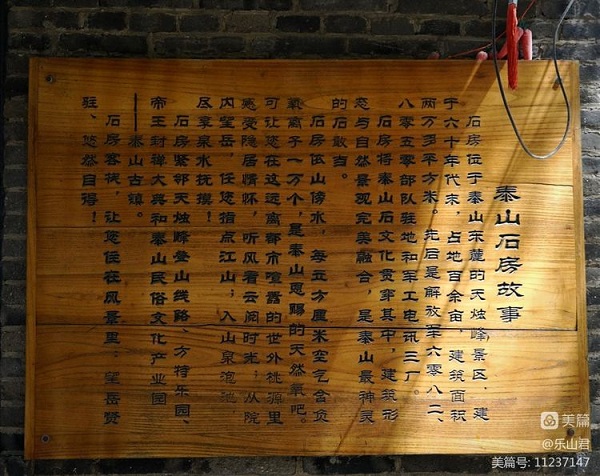 泰山石房故事
石房位于泰山东麓的天烛峰景区，建
于六十年代末，占地百余亩，建筑面积
两万多平方米。先后是解放军六零八二、
八零五零部队驻地和军工电讯三厂。
石房将泰山石文化贯穿其中，建筑形
态与自然景观完美融合，是泰山最神灵
的石敢当。
石房依山傍水，每立方厘米空气含负
氧离子一万个，是泰山恩赐的天然氧吧。
可让您在这远离都市喧嚣的世外桃源里
感受隐居情怀，听风看云阅时光；从院
内望岳，任您指点江山；入山泉泡池
尽享泉水抚摸！
石房紧邻天烛峰登山线路、方特乐园、
帝王封禅大典和泰山民俗文化产业园
——泰山古镇。
石房客栈，让您住在风景里；望岳赞
驻、悠然自得！
美篇
@乐山君
美篇号：11237147